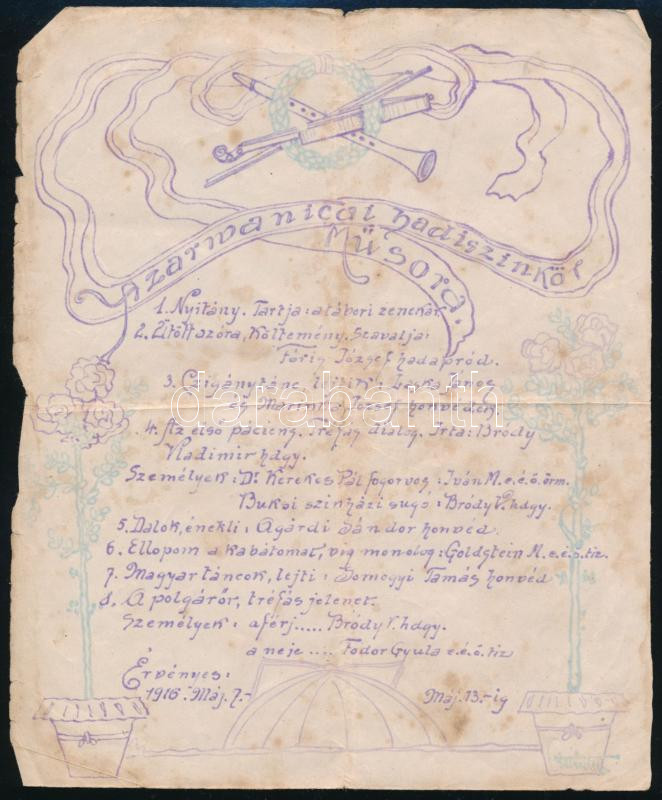 A zarwanicai hadiszinkör
Műsora.
1. Nyitány. Tartja: a tábori zenekar
2. Ütött szóra, költemény. Szavalja:
József hadapród.
3. Czigánytánc, lejtik: Laska János
és Marinka József honvédek.
4. Az első páciens. Tréfás dialog. Irta: Bródy
Vladimir hdgy.
Személyek: Dr. Kerekes Pál fogorvos: Iván M. e.é.ö. őrm.
Buksi szinházi sugó: Bródy V. hdgy.
5. Dalok, énekli: Agárdi Sándor honvéd.
6. Ellopom a kabátomat, vig monolog: Goldstein M. e.é.ö. tiz.
7. Magyar táncok, lejti: Somogyi Tamás honvéd
8. A polgárőr, tréfás jelenet.
Személyek: a férj..... Bródy V. hdgy.
a neje .... Fodor Gyula e.é.ö. tiz
Érvényes:
1916. Máj. 7.- Máj. 13.-ig
darabanth